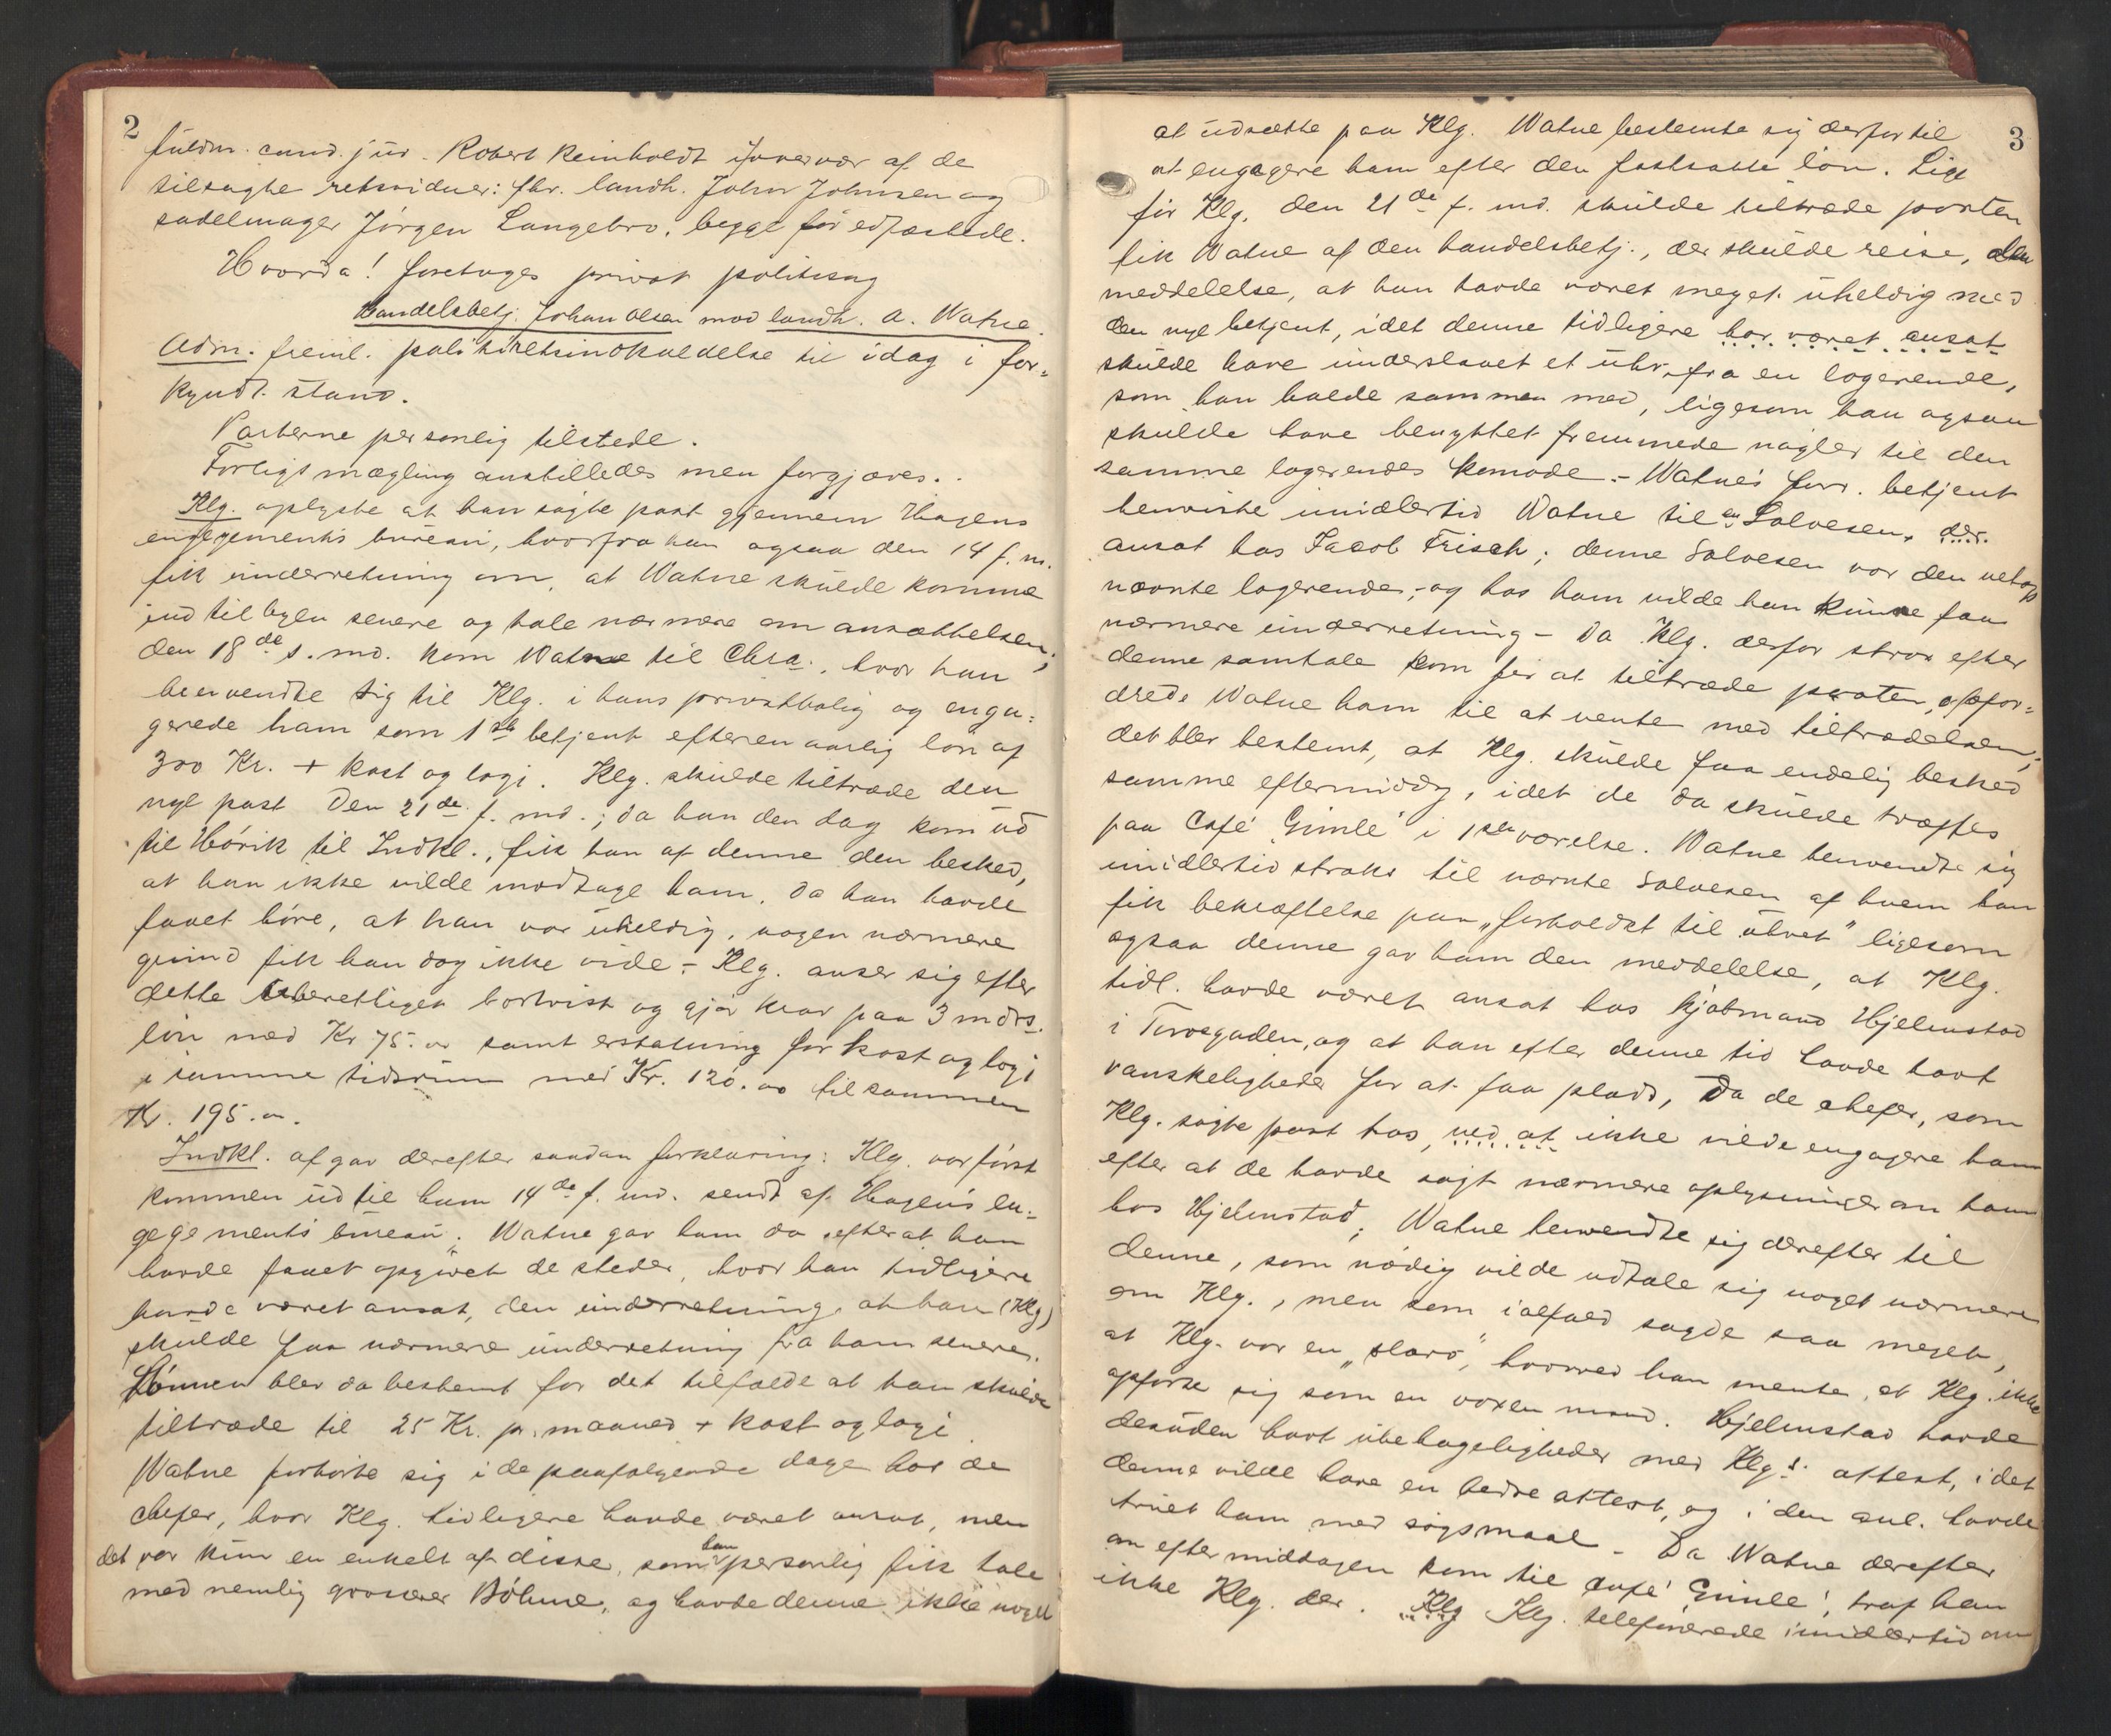 2
fuldm. cand. jur. Robert Reinholdt i overvær af de
tilsagte retsvidner: fhv. landh. John Johnsen og
sadelmager Jørgen Langebro, begge før edfæstede.
Hvorda! foretages privat politisag
Handelsbetj. Johan Olsen mod landh. A. Watne.
Adm. freml. politiretsindkaldelse til idag i for-
kyndt stand.
Parterne personlig tilstede.
Forligsmægling anstilledes men forgjæves.
Klg. oplyste at han søgte post gjennem Hagens
engegements bureau, hvorfra han ogsaa den 14 f. m.
fik underretning om, at Watne skulde komme
ind til byen senere og tale nærmere om ansættelsen;
den 18de s. md. kom Watne til Chra., hvor han
henvendte sig til Klg. i hans privatbolig og enga-
gerede ham som 1ste betjent efter en aarlig løn af
300 Kr. + kost og logi. Klg. skulde tiltræde den
nye post den 21de f. md.; da han den dag kom ud
til Hørik til Indkl., fik han af denne den besked,
at han ikke vilde modtage ham, da han havde
faaet høre, at han var uheldig, nogen nærmere
grund fik han dog ikke vide. - Klg. anser sig efter
dette uberettiget bortvist og gjør krav paa 3 mdrs.
løn med Kr 75.00 samt erstatning for kost og logi
i samme tidsrum med Kr. 120.00 tilsammen
Kr. 195.00.
Indkl. afgav derefter saadan forklaring: Klg. var først
kommen ud til ham 14de f. md. sendt af Hagens en-
gegements bureau; Watne gav ham da efter at han
havde faaet opgivet de steder, hvor han tidligere
havde været ansat, den underretning, at han (Klg)
skulde faa nærmere underretning fra ham senere.
Lønnen blev da bestemt for det tilfælde at han skulde
tiltræde til 25 Kr. pr. maaned + kost og logi
Watne forhørte sig i de paafølgende dage hos de
chefer, hvor Klg. tidligere havde været ansat, men
det var kun en enkelt af disse, som han personlig fik tale
med nemlig grosserer Bøhme, og havde denne ikke noget
3
at udsætte paa Klg. Watne bestemte sig derfor til
at engagere ham efter den fastsatte løn. Lige
før Klg. den 21de f. md. skulde tiltræde posten
fik Watne af den handelsbetj., der skulde reise, den
meddelelse, at han havde været meget uheldig med
den nye betjent, idet denne tidligere har været ansat
skulde have underslaaet et uhr, fra en logerende,
som han havde sammen med, ligesom han ogsaa
skulde have benyttet fremmede nøgler til den
samme logerendes komode. - Watne's forr. betjent
henviste imidlertid Watne til en Salvesen, der.
ansat hos Jacob Frisch; denne Salvesen var den netop
nævnte logerende, - og hos ham vilde han kunne faa
nærmere underretning - Da Klg. derfor strax efter
denne samtale kom for at tiltræde posten, opfor-
drede Watne ham til at vente med tiltrædelsen;
det blev bestemt, at Klg. skulde faa endelig besked
samme eftermiddg, idet de da skulde træffes
paa Café 'Gimle' i 1ste værelse. Watne henvendte sig
imidlertid straks til nævnte Salvesen af hvem han
fik bekræftelse paa „forholdet til uhret" ligesom
ogsaa denne gav ham den meddelelse, at Klg.
tidl. havde været ansat hos kjøbmand Hjelmstad
i Torvegaden, og at han efter denne tid havde havt
vanskeligheder for at faa plads, da de chefer, som
Klg. søgte post hos, ved at ikke vilde engagere ham
efter at de havde søgt nærmere oplysninger om ham
hos Hjelmstad; Watne henvendte sig derefter til
denne, som nødig vilde udtale sig noget nærmere
om Klg., men som ialfald sagde saa meget,
at Klg. var en „slarv", hvorved han mente, at Klg. ikke
opførte sig som en voxen mand. Hjelmstad havde
desuden havt ubehageligheder med Klgs. attest, idet
denne vilde have en bedre attest, og i den anl. havde
truet ham med søgsmaal - Da Watne derefter
om eftermiddagen kom til Café 'Gimle', traf han
ikke Klg. der. Klg Klg. telefonerede imidlertid om